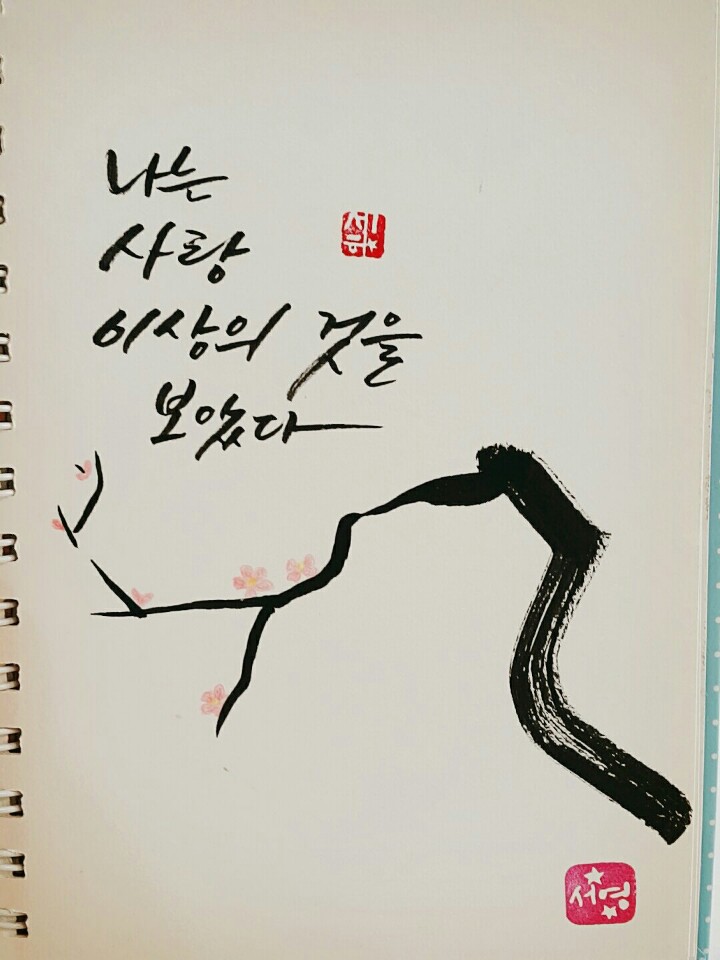 나는
사랑
이상의 것을
보았다
서영